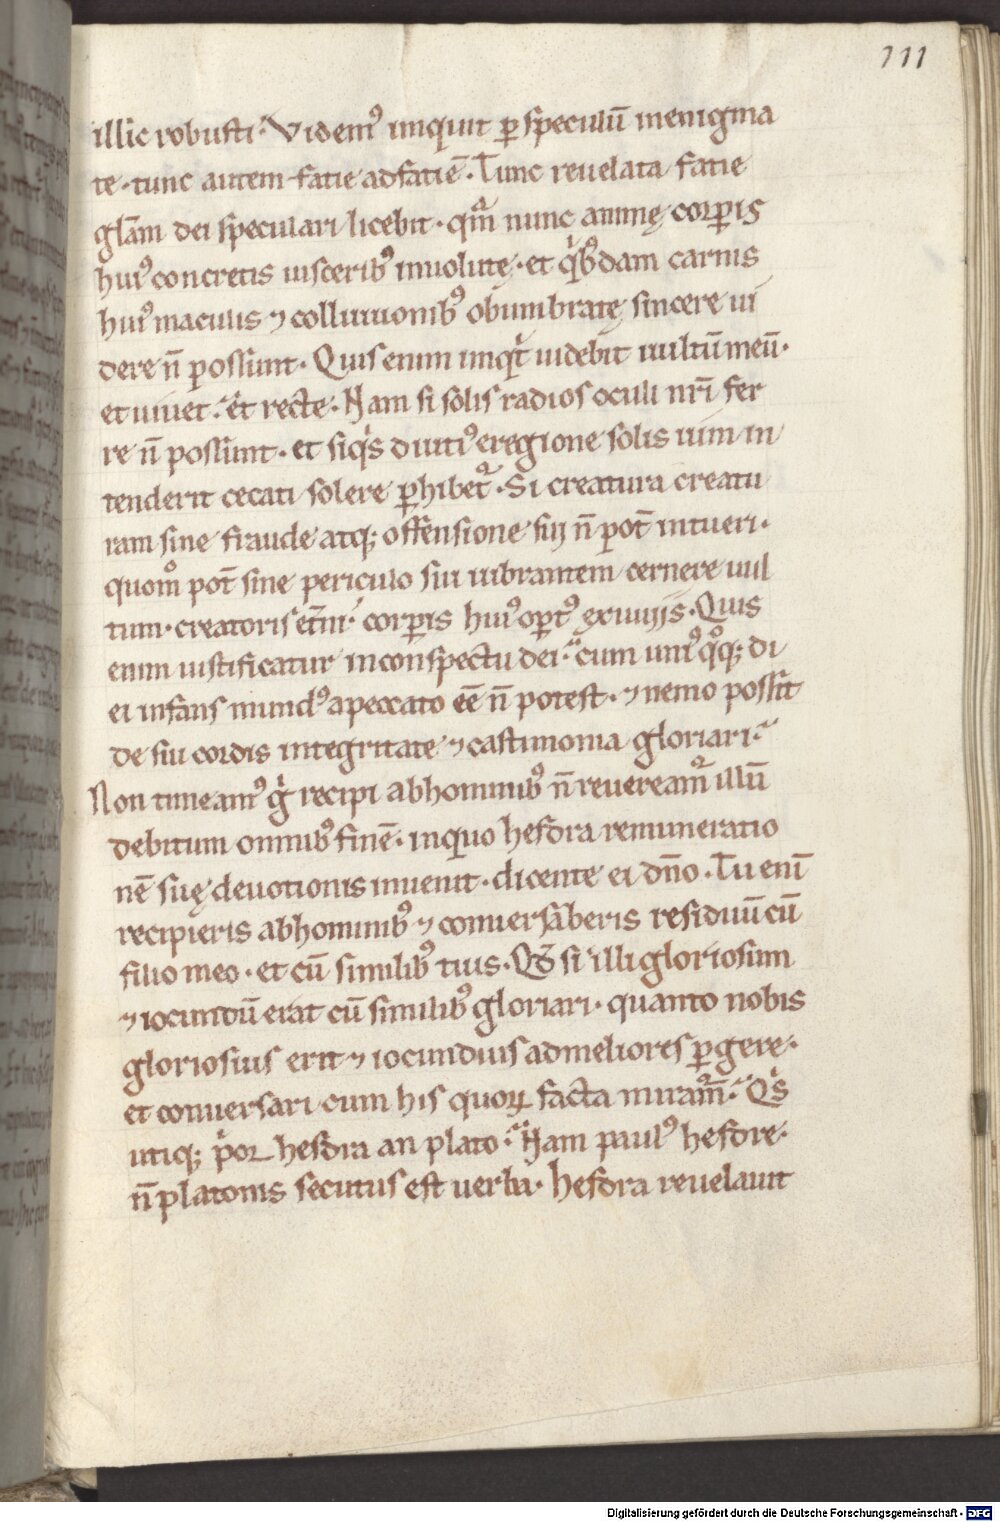 111
illic robusti. Videm᷒ inquit ꝑ speculū inenigma
te. tunc autem fatie adfatiē. Tunc reuelata fatie
gl̄am dei speculari licebit. qm̄ nunc animę corꝑis
hui᷒ concretis uisceribꝰ inuolutę. et qⁱbꝰdam carnis
hui᷒ maculis ⁊ colluuionibꝰ obumbratę sincere ui
dere n̄ possunt. Quis enim inqⁱt uidebit uultū meū.
et uiuet. et recte. Nam si solis radios oculi nr̄i fer
re n̄ possunt. et siqⁱs diuti᷒ eregione solis uim in
tenderit cecati solere ꝑhibet᷑. Si creatura creatu
ram sine fraude atq; offensione sui n̄ pot̄ intueri.
quomͦ pot̄ sine periculo sui uibrantem cernere uul
tum. creatoris et̄ni. corꝑis hui᷒ opt᷒ exuuiis. Quis
enim iustificatur inconspectu dei. cum uni᷒ qͦq; di
ei infans mund᷒ apeccato eē n̄ potest. ⁊ nemo possit
de sui cordis integritate ⁊ castimonia gloriari.
Non timeam᷒ gͥ recipi abhominibꝰ n̄ reueream᷑ illū
debitum omnibꝰ finē. inquo hesdra remuneratio
nē suę deuotionis inuenit. dicente ei dn̄o. Tu enī
recipieris abhominibꝰ ⁊ conuersaberis residuū cū
filio meo. et cū similibꝰ tuis. Qđ si illi gloriosum
⁊ iocundū erat cū similibꝰ gloriari. quanto nobis
gloriosius erit ⁊ iocundius admeliores ꝑgere.
et conuersari cum his quoꝝ facta miram᷑. Qⁱs
utiq; pⁱor hesdra an plato. Nam paul᷒ hesdre.
n̄ platonis secutus est uerba. hesdra reuelauit
Digitalisierung gefördert durch die Deutsche Forschungsgemeinschaft - DFG